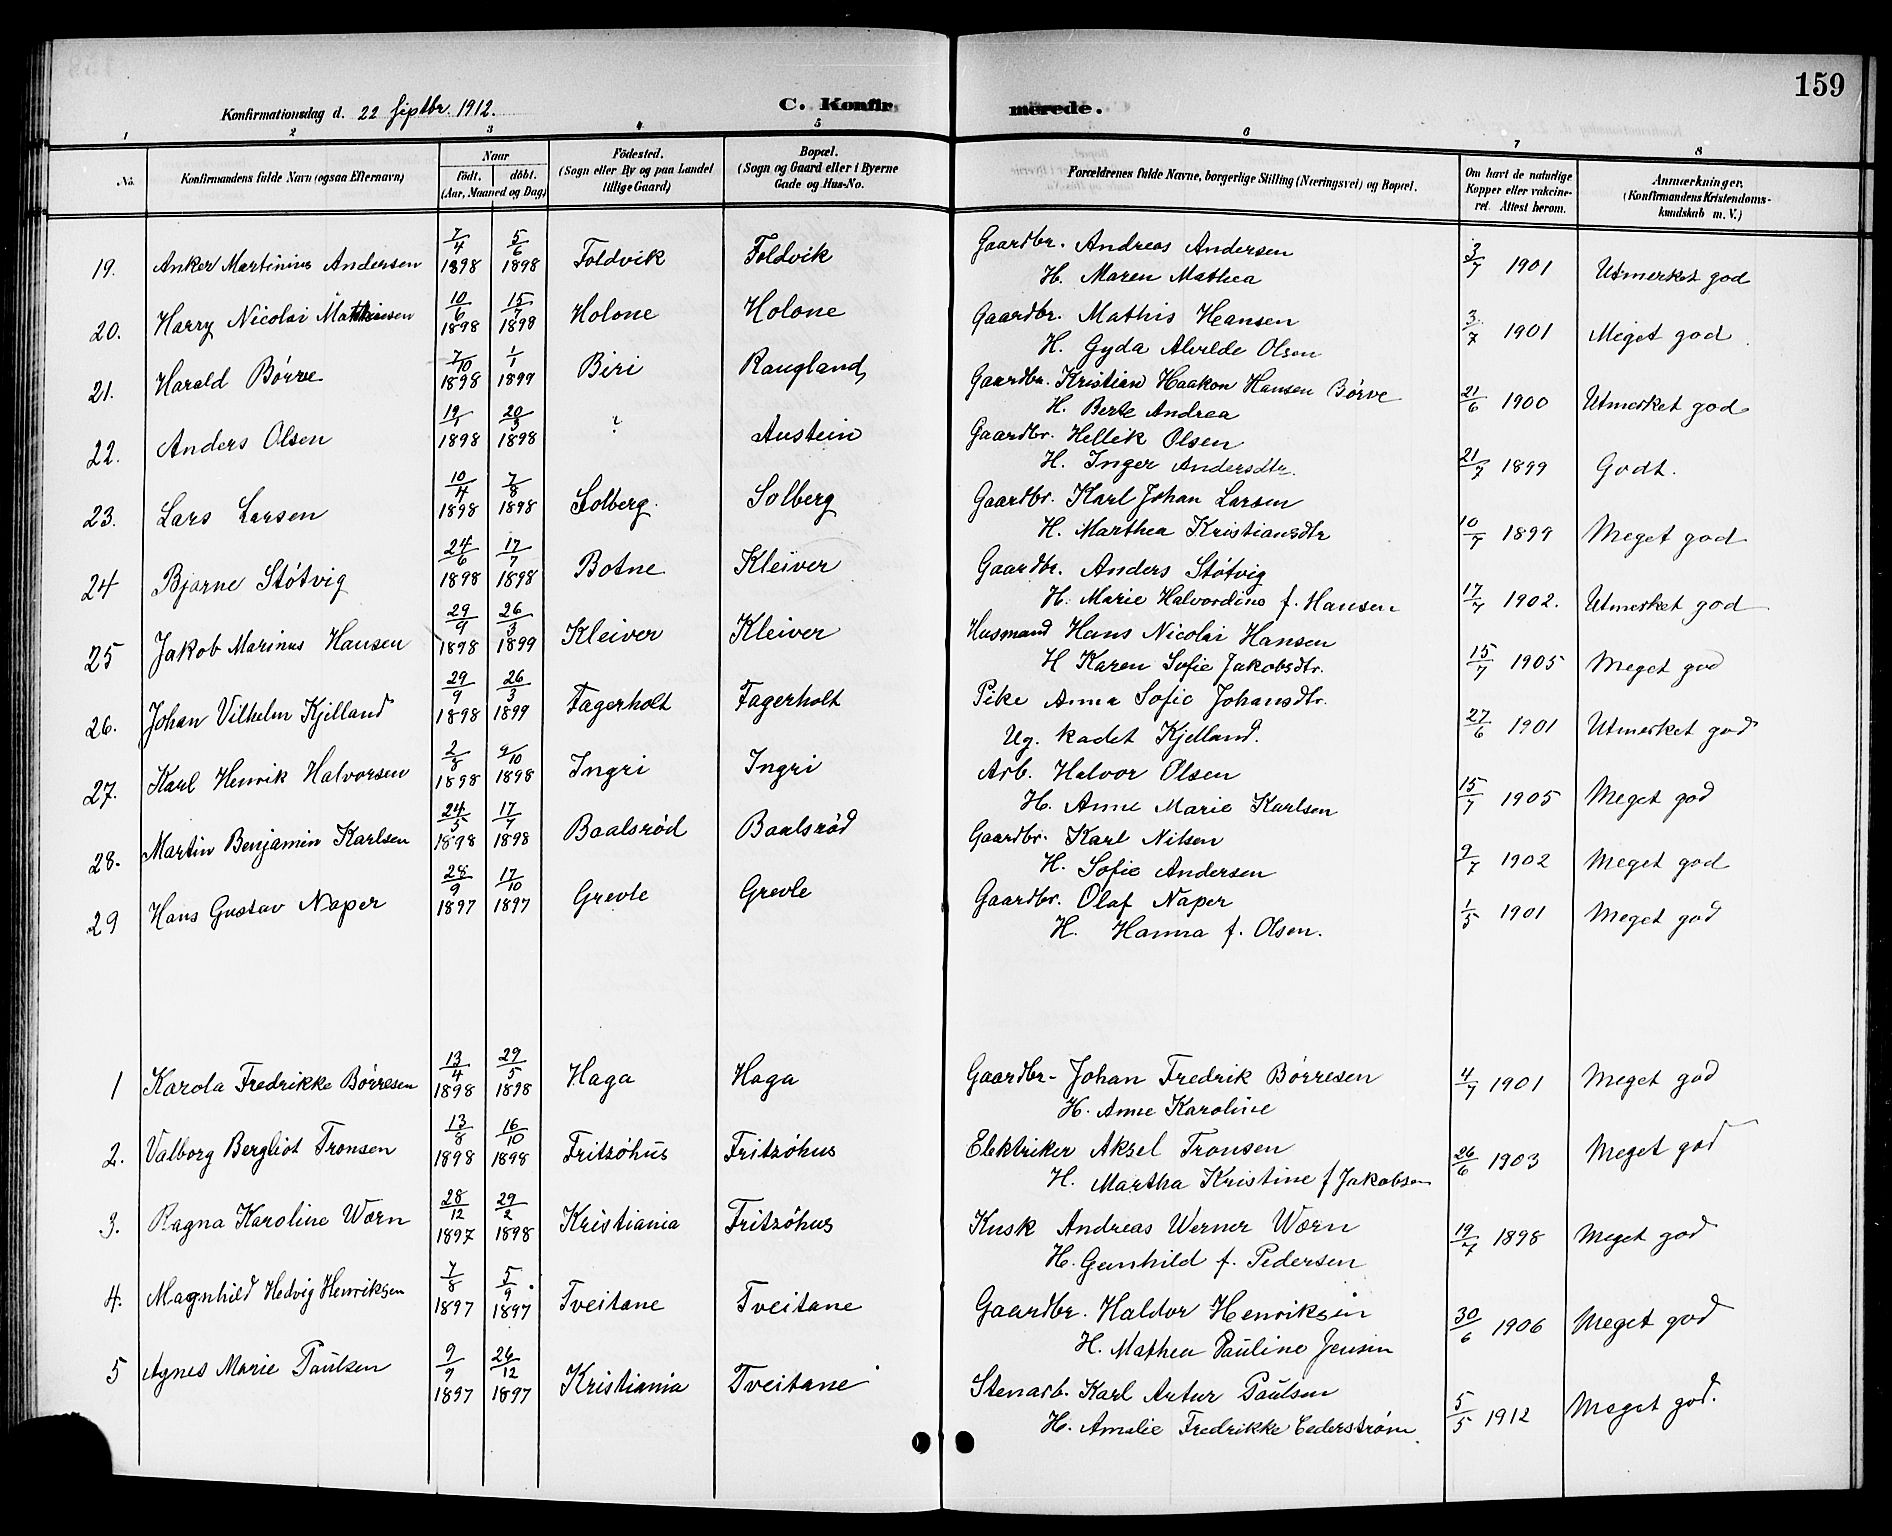 159
Konfirmationsdag d. 22 Septbr. 1912.
C. Konfirmerede.
1 2 3 4 5 6 7 8
No.
Konfirmandens fulde Navn (ogsaa Efternavn)
Naar
födt. döbt.
(Aar, Maaned og Dag)
Födested.
(Sogn eller By og paa Landet
tillige Gaard)
Bopæl.
(Sogn og Gaard eller i Byerne
Gade og Hus-No.
Forældrenes fulde Navne, borgerlige Stilling (Næringsvei) og Bopæl.
Om havt de naturlige
Kopper eller vakcine-
ret. Attest herom.
Anmærkninger.
(Konfirmandens Kristendoms-
kundskab m. V.)
19. Anker Martinius Andersen 7/4 1898 5/6 1898 Foldvik Foldvik Gaardbr. Andreas Andersen 3/7 1901 Utmerket god
H. Maren Mathea
20. Harry Nicolai Mathisen 10/6 1898 15/7 1898 Holone Holone Gaardbr. Mathis Hansen 3/7 1901 Meget god
H. Gyda Alvilde Olsen
21. Harald Börve 7/10 1898 1/1 1899 Biri Raugland Gaardbr. Kristian Haakon Hansen Börve 21/6 1900 Utmerket god
H. Berte Andrea
22. Anders Olsen 19/1 1898 20/3 1898 ? Austein Gaardbr. Hellik Olsen 21/7 1899 Godt.
H. Inger Andersdtr.
23. Lars Larsen 10/4 1898 7/8 1898 Solberg. Solberg Gaardbr. Karl Johan Larsen 10/7 1899 Meget god
H. Marthea Kristiansdtr
24 Bjarne Stötvig 24/6 1898 17/7 1898 Botne Kleiver Gaardbr. Anders Stötvig 17/7 1902. Utmerket god
H. Marie Halvordine f. Hansen
25 Jakob Marinus Hansen 29/9 1898 26/3 1899 Kleiver Kleiver Husmand Hans Nicolai Hansen 15/7 1905 Meget god
H Karen Sofie Jakobsdtr.
26. Johan Vilhelm Kjelland 29/9 1898 26/3 1899 Fagerholt Fagerholt Pike Anna Sofie Johansdtr. 27/6 1901 Utmerket god
Ug. kadet Kjelland.
27. Karl Henrik Halvorsen 2/8 1898 9/10 1898 Ingri Ingri Arb. Halvor Olsen 15/7 1905 Meget god
H. Anne Marie Karlsen
28. Martin Benjamin Karlsen 24/5 1898 17/7 1898 Baalsröd Baalsröd Gaardbr. Karl Nilsen 9/7 1902 Meget god
H. Sofie Andersen
29 Hans Gustav Naper 28/9 1897 17/10 1897 Grevle Grevle Gaardbr. Olaf Naper 1/5 1901 Meget god
H. Hanna f. Olsen.
1 Karola Fredrikke Börresen 13/4 1898 29/5 1898 Haga Haga Gaardbr- Johan Fredrik Börresen 4/7 1901 Meget god
H. Anne Karoline
2. Valborg Bergliot Tronsen 13/8 1898 16/10 1898 Fritzöhus Fritzöhus Elektriker Aksel Tronsen 26/6 1903 Meget god
H. Martha Kristine f Jakobsen
3. Ragna Karoline Wærn 28/12 1897 29/2 1898 Kristiania Fritzöhus Kusk Andreas Werner Wærn 19/7 1898 Meget god
H. Gunhild f. Pedersen
4. Magnhild Hedvig Henriksen 7/8 1897 5/9 1897 Tveitane Tveitane Gaardbr. Haldor Henriksen 30/6 1906 Meget god
H. Mathea Pauline Jensen
5 Agnes Marie Paulsen 9/9 1897 26/12 1897 Kristiania Tveitane Stenarb. Karl Artur Paulsen 5/5 1912 Meget god.
H. Amalie Fredrikke Cederström.